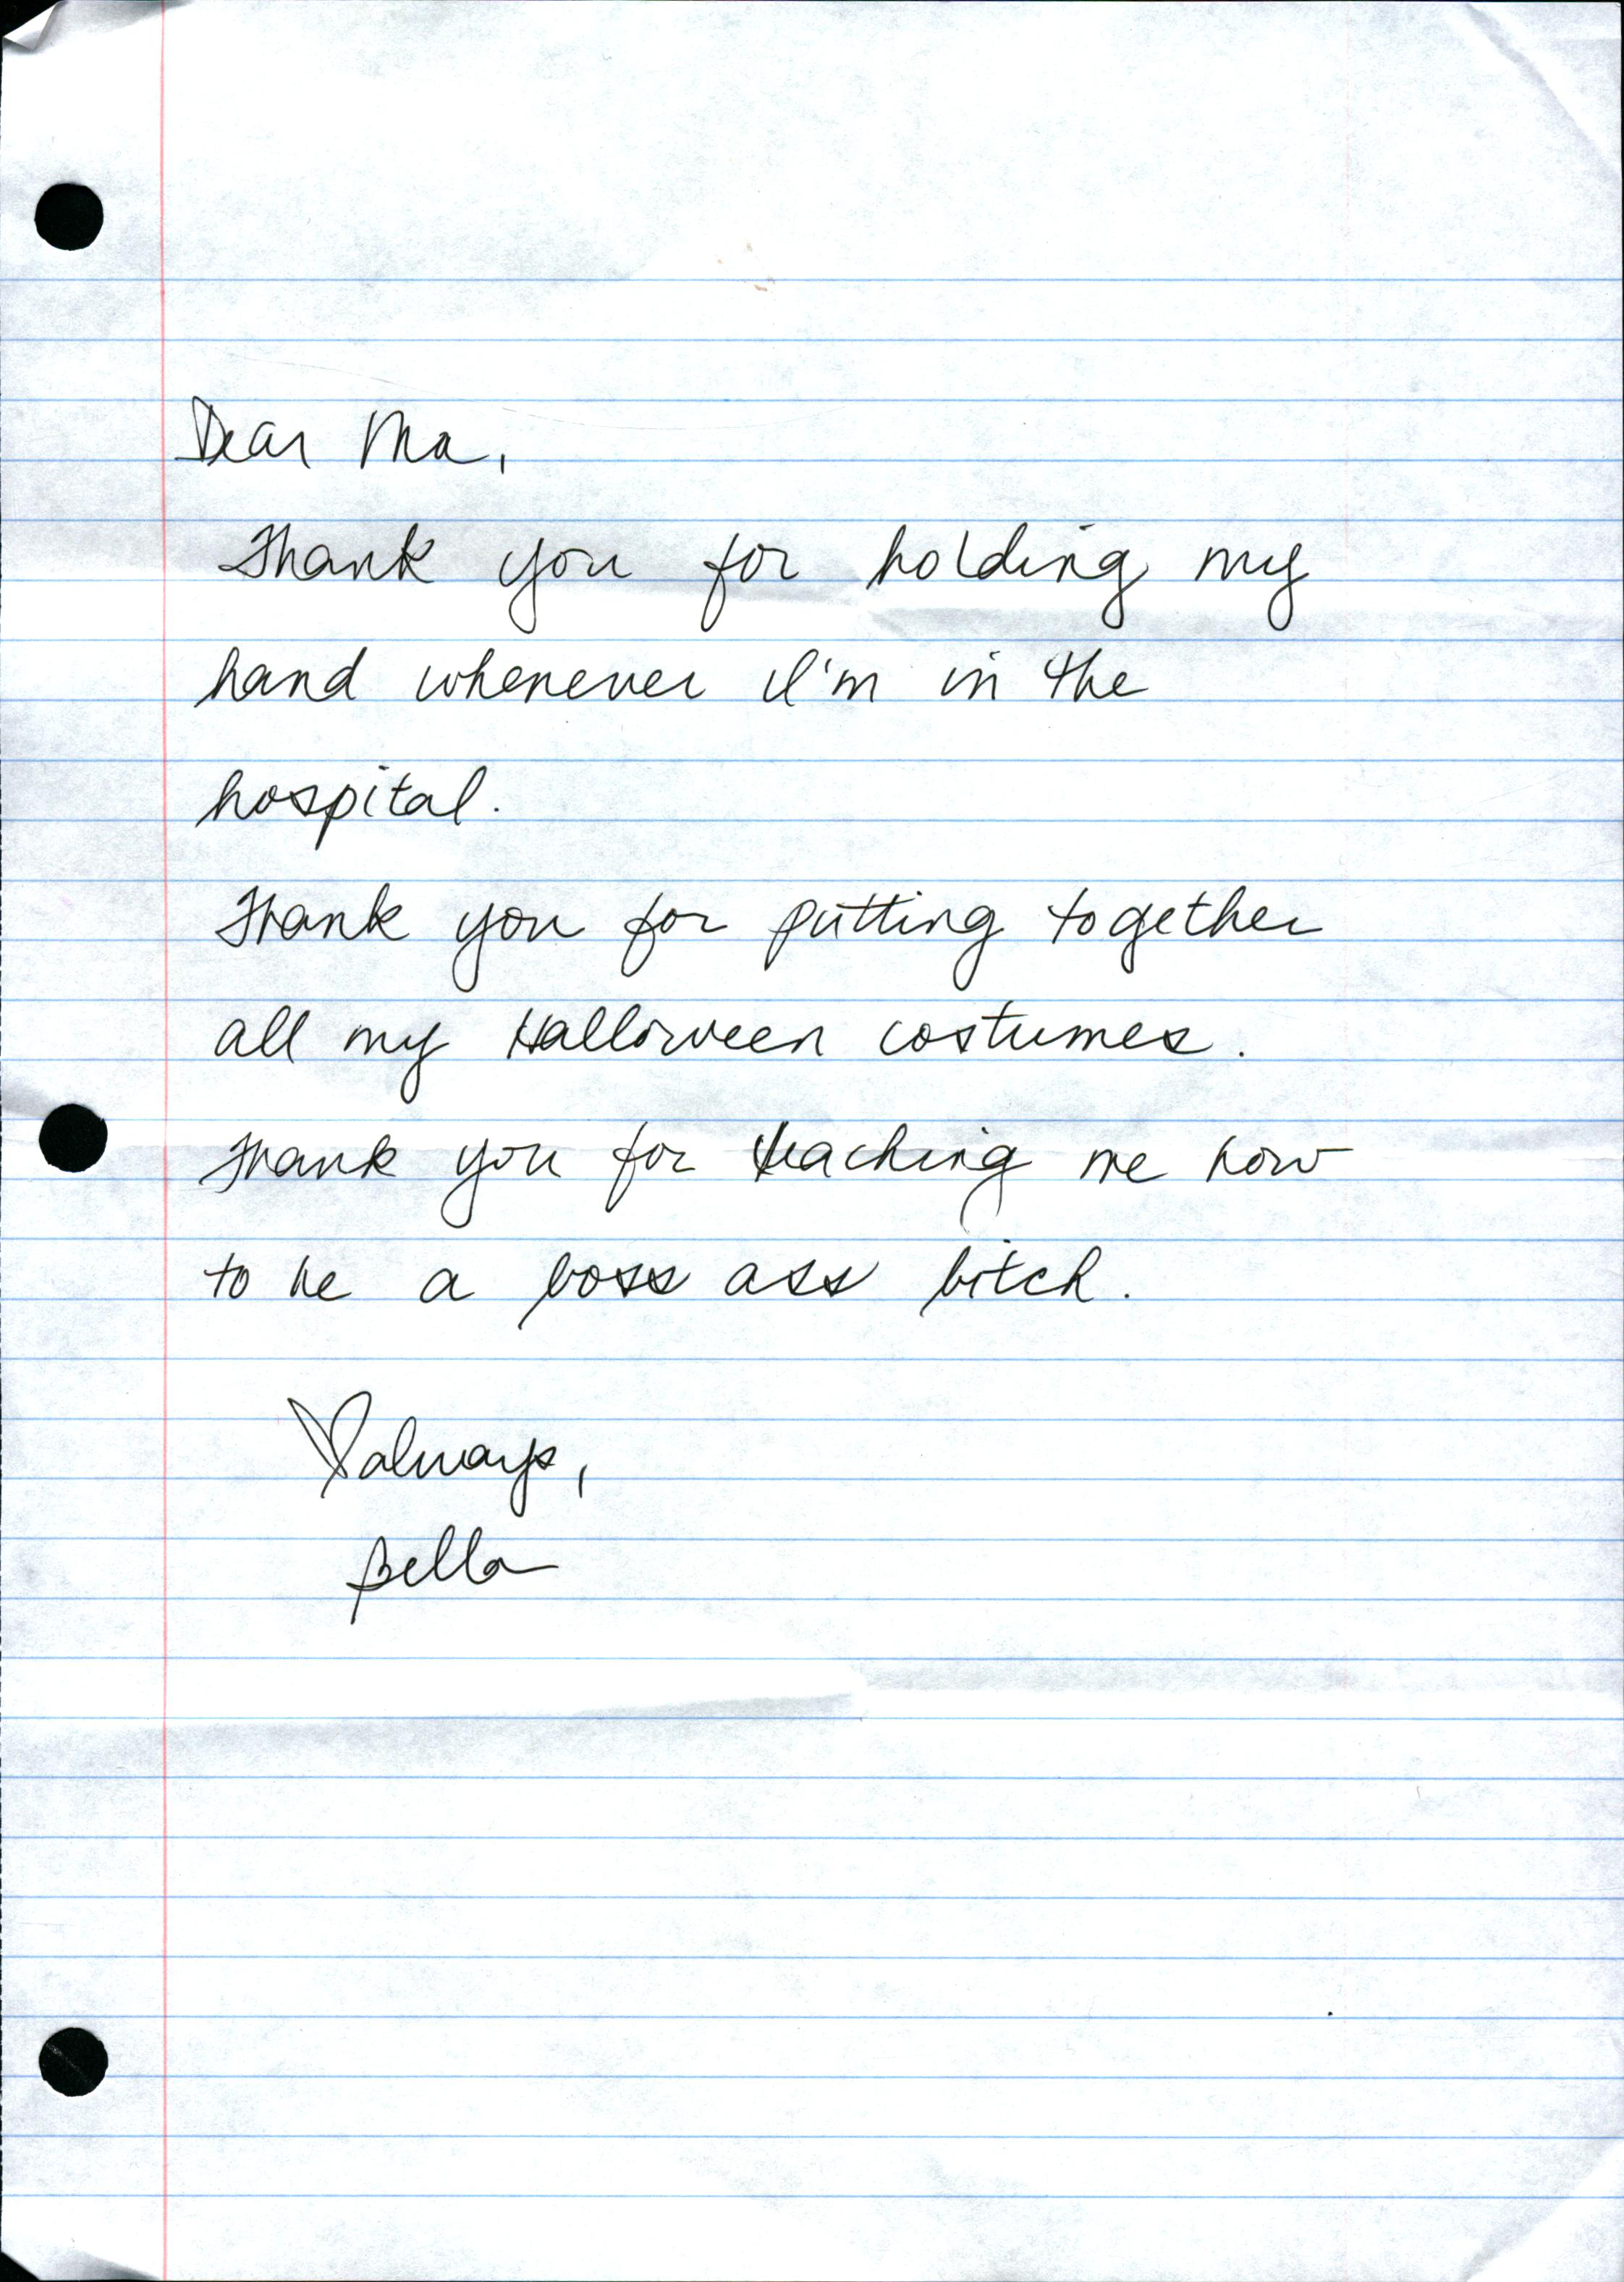 Dear Ma,
Thank you for holding my
hand whenever I'm in the
hospital.
Thank you for putting together
all my Halloween costumes.
Thank you for teaching me how
to be a boss ass bitch.
♡ always,
Bella